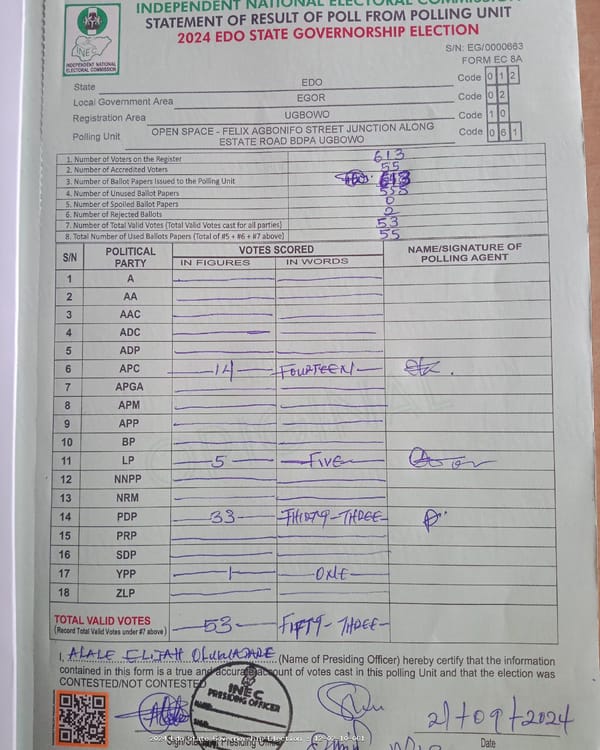 INDEPENDENT NATIONAL ELECTORAL COMMISSION
STATEMENT OF RESULT OF POLL FROM POLLING UNIT
2024 EDO STATE GOVERNORSHIP ELECTION
INEC
INDEPENDENT NATIONAL
ELECTORAL COMMISSION
S/N: EG/0000663
FORM EC 8A
State EDO Code 0 1 2
Local Government Area EGOR Code 0 2
Registration Area UGBOWO Code 1 0
Polling Unit OPEN SPACE - FELIX AGBONIFO STREET JUNCTION ALONG Code 0 6 1
ESTATE ROAD BDPA UGBOWO
1. Number of Voters on the Register 613
2. Number of Accredited Voters 55
3. Number of Ballot Papers Issued to the Polling Unit 613
4. Number of Unused Ballot Papers 558
5. Number of Spoiled Ballot Papers 0
6. Number of Rejected Ballots 2
7. Number of Total Valid Votes (Total Valid Votes cast for all parties) 53
8. Total Number of Used Ballots Papers (Total of #5 + #6 + #7 above) 55
S/N POLITICAL PARTY VOTES SCORED NAME/SIGNATURE OF POLLING AGENT
IN FIGURES IN WORDS
1 A
2 AA
3 AAC
4 ADC
5 ADP
6 APC 14 FOURTEEN
7 APGA
8 APM
9 APP
10 BP
11 LP 5 FIVE
12 NNPP
13 NRM
14 PDP 33 THIRTY-THREE
15 PRP
16 SDP
17 YPP 1 ONE
18 ZLP
TOTAL VALID VOTES 53 FIFTY-THREE
(Record Total Valid Votes under #7 above)
I, ALALE ELIJAH (Name of Presiding Officer) hereby certify that the information
contained in this form is a true and accurate account of votes cast in this polling Unit and that the election was
CONTESTED/NOT CONTESTED
INEC
PRESIDING OFFICER
NAME
21/09/2024
2024 Edo State Governorship Election - 12-02-10-061
Presiding Officer Date